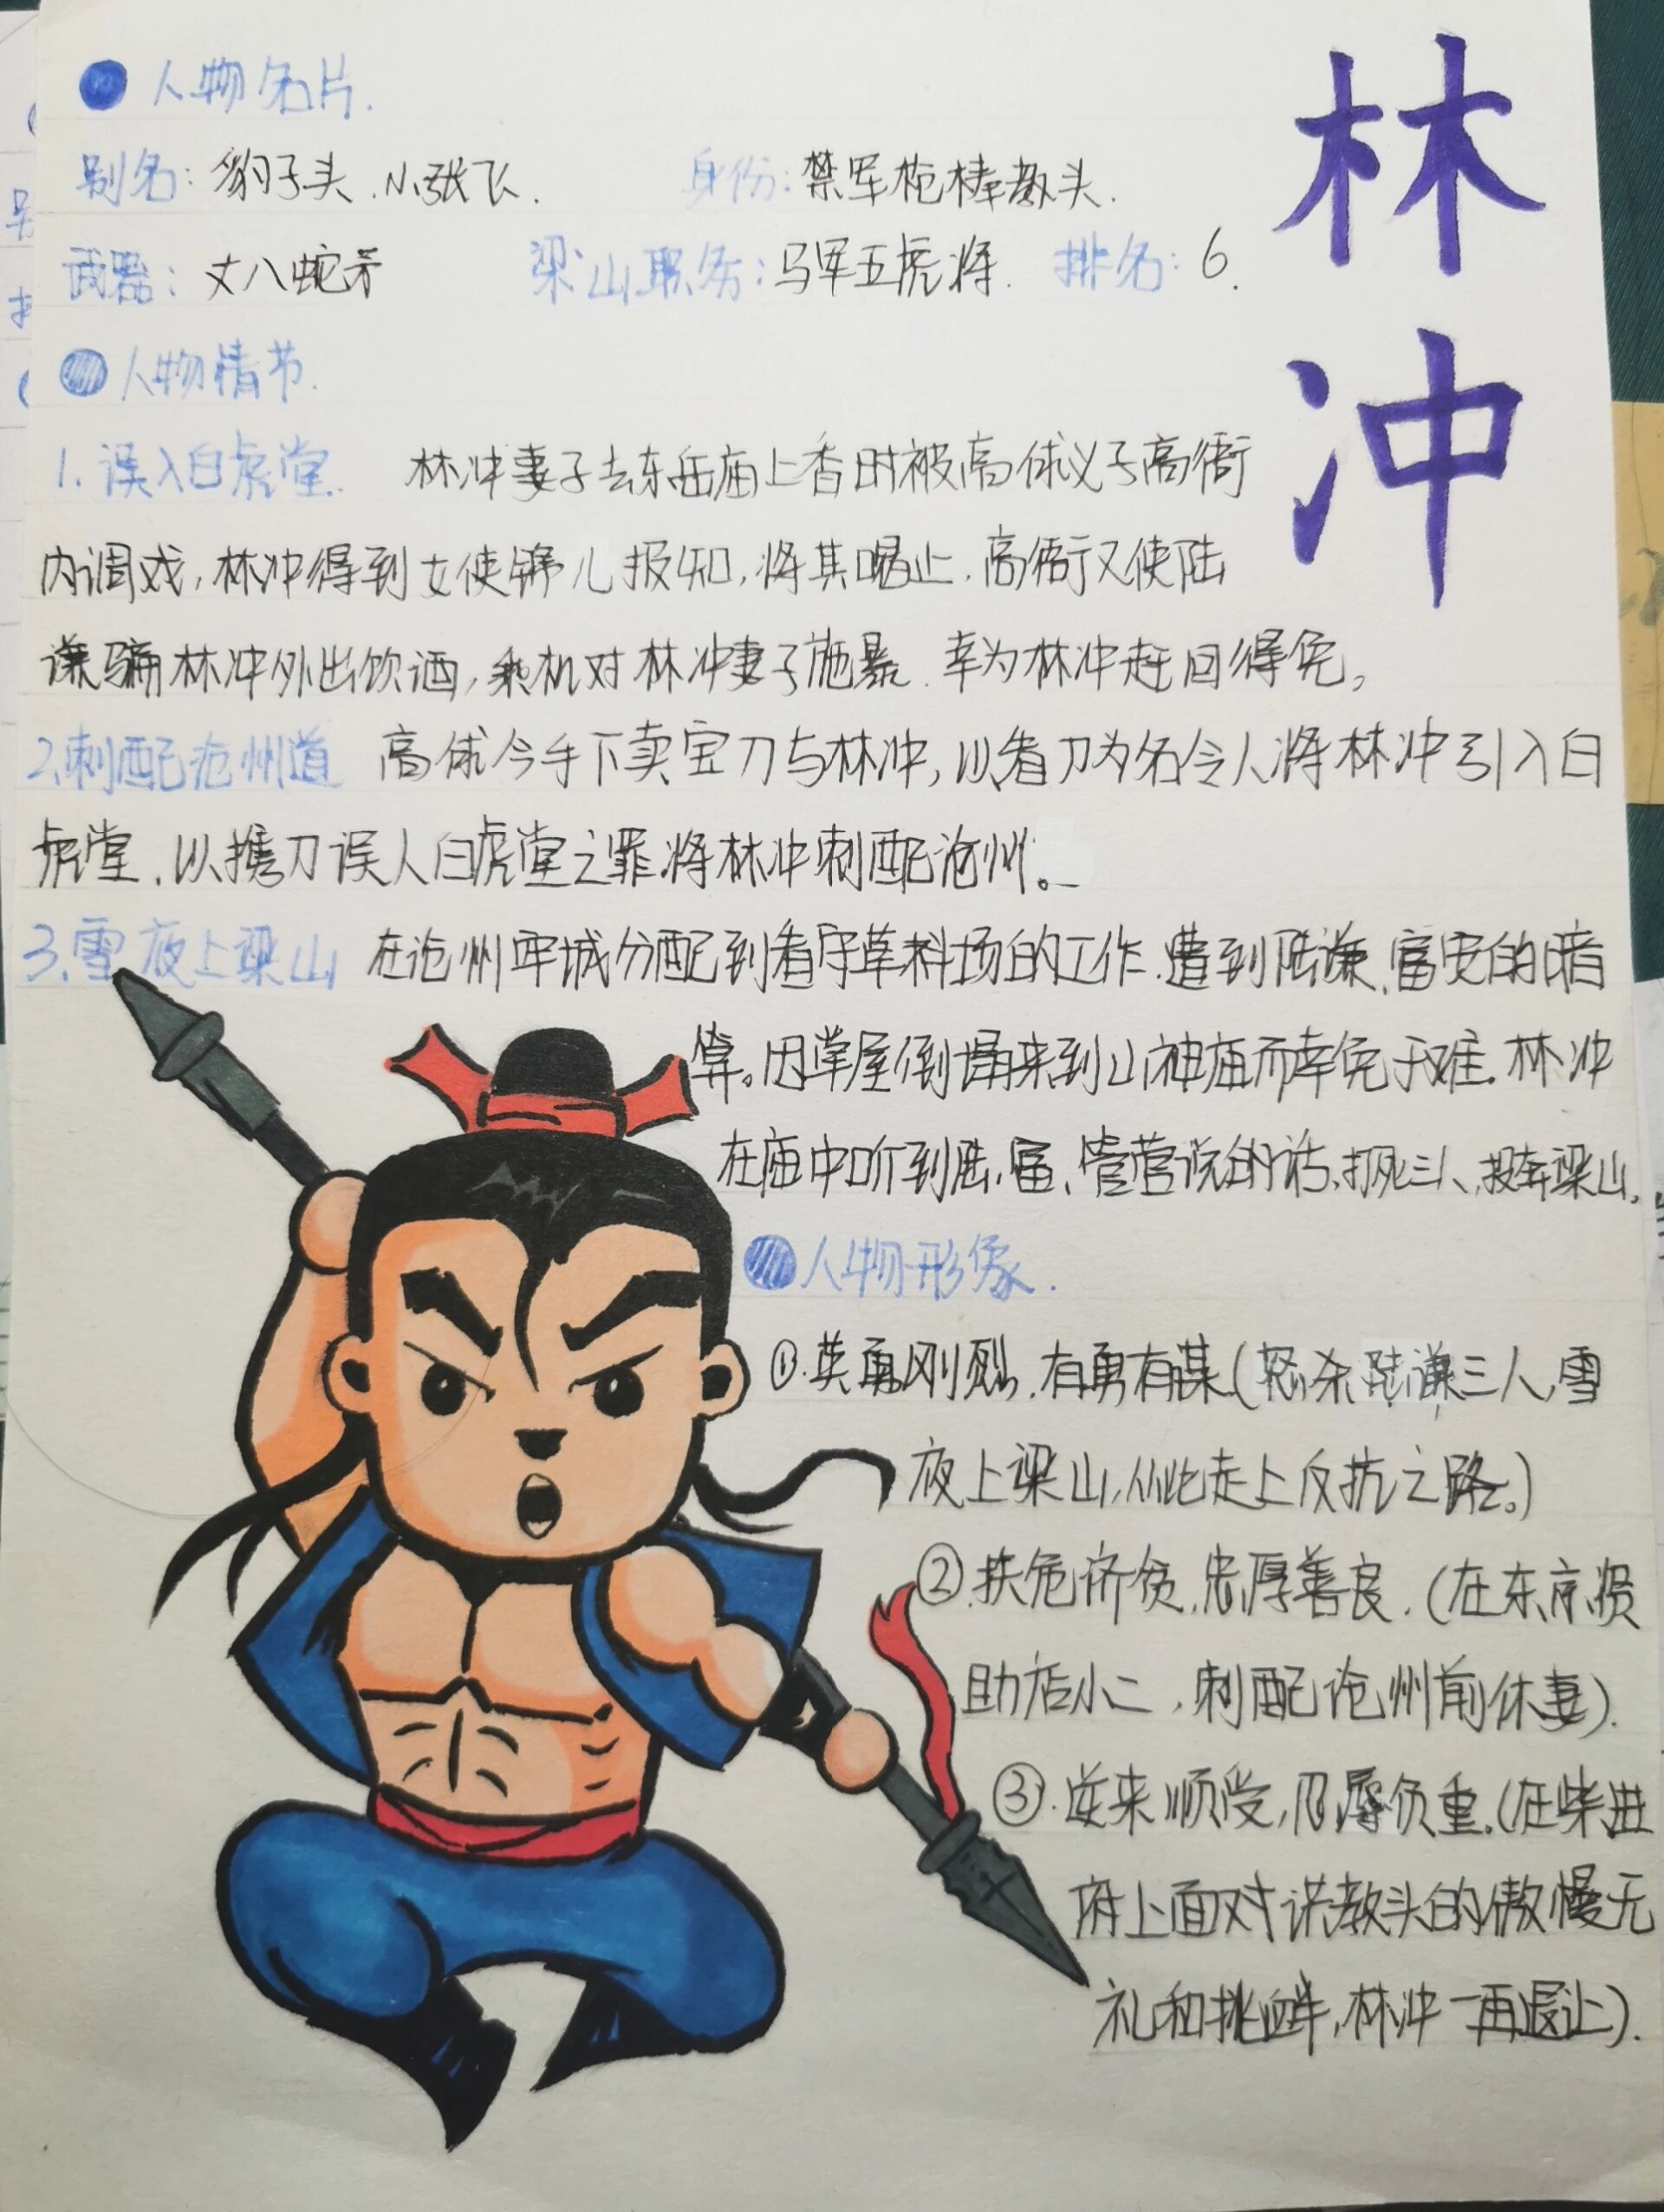 林冲
人物名片.
别名:豹子头.小张飞. 身份:禁军枪棒教头.
武器:丈八蛇矛 梁山职务:马军五虎将. 排名:6.
人物情节.
1.误入白虎堂. 林冲妻子去东岳庙上香时被高俅义子高衙
内调戏,林冲得到女使锦儿报知,将其喝止.高衙又使陆
谦骗林冲外出饮酒,乘机对林冲妻子施暴.幸为林冲赶回得免。
2.刺配沧州道 高俅令手下卖宝刀与林冲,以看刀为名令人将林冲引入白
虎堂.以携刀误入白虎堂之罪将林冲刺配沧州。
3.雪夜上梁山 在沧州牢城分配到看守草料场的工作.遭到陆谦、富安的暗
算。因草屋倒塌来到山神庙而幸免于难.林冲
在庙中听到陆、富、管营说的话,打死三人,投奔梁山。
人物形像.
①.英勇刚烈.有勇有谋(怒杀陆谦三人,雪
夜上梁山,从此走上反抗之路。)
②.扶危济贫,忠厚善良.(在东京资
助店小二,刺配沧州前休妻).
③.逆来顺受,忍辱负重.(在柴进
府上面对洪教头的傲慢无
礼和挑衅,林冲一再退让).